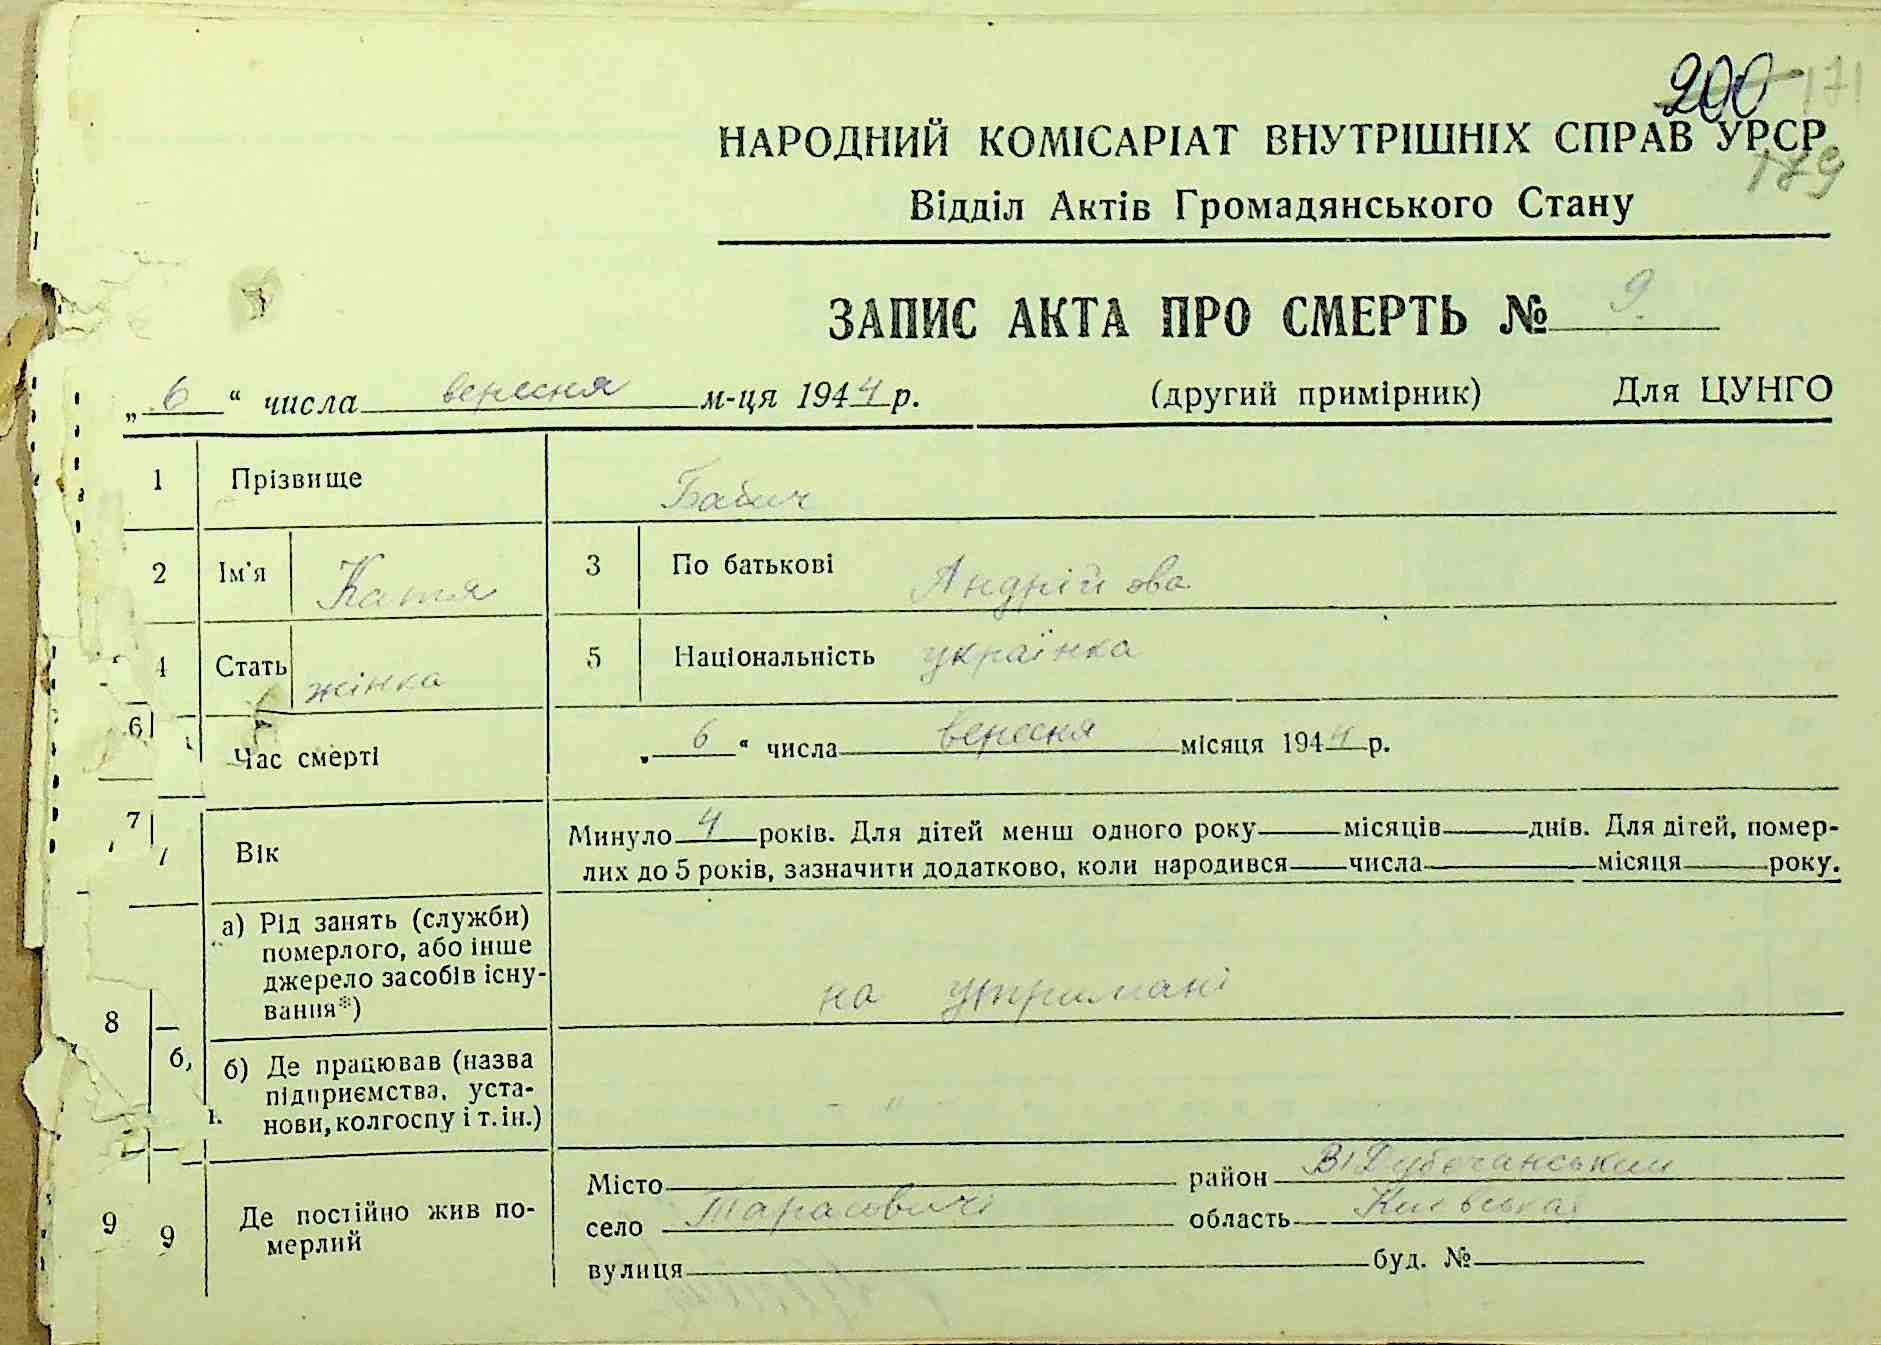 200 171
НАРОДНИЙ КОМІСАРІАТ ВНУТРІШНІХ СПРАВ УРСР
179
Відділ Актів Громадянського Стану
ЗАПИС АКТА ПРО СМЕРТЬ № 9.
„ 6 “ числа вересня м-ця 1944 р. (другий примірник) Для ЦУНГО
1 Прізвище Бабич
2 Ім'я Катя 3 По батькові Андрійова
4 Стать жінка 5 Національність українка
6 Час смерті „ 6 “ числа вересня місяця 1944 р.
7 Вік Минуло 4 років. Для дітей менш одного року місяців днів. Для дітей, помер-
лих до 5 років, зазначити додатково, коли народився числа місяця року.
8 а) Рід занять (служби)
померлого, або інше
джерело засобів існу-
вання*) на утримані
б, б) Де працював (назва
підприємства, уста-
нови, колгоспу і т. ін.) "
9 9 Де постійно жив по-
мерлий
Місто район В/Дубечанський
село Тарасовичі область Київська
вулиця буд. №